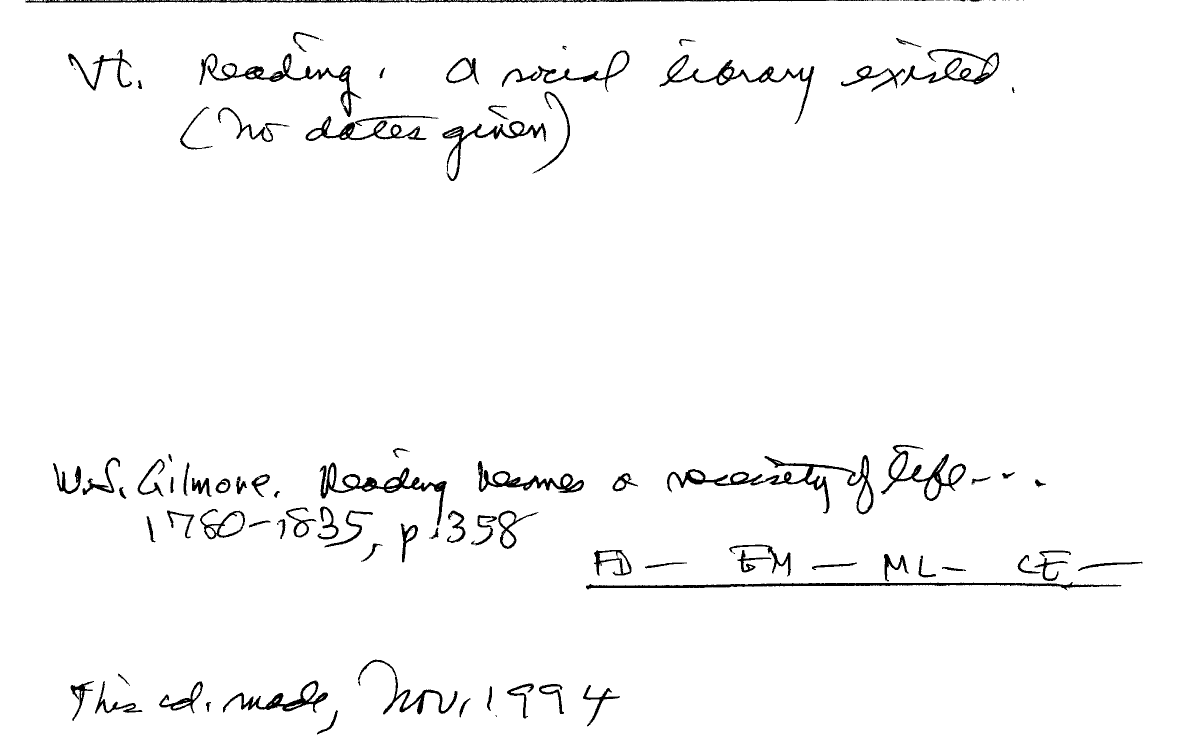 Vt. Reading. A social library existed.
(no dates given)
W.S. Gilmore. Reading becomes a necessity of life...
1780-1835, p.358
FD — EM — ML — CE —
This cd. made, Nov, 1994